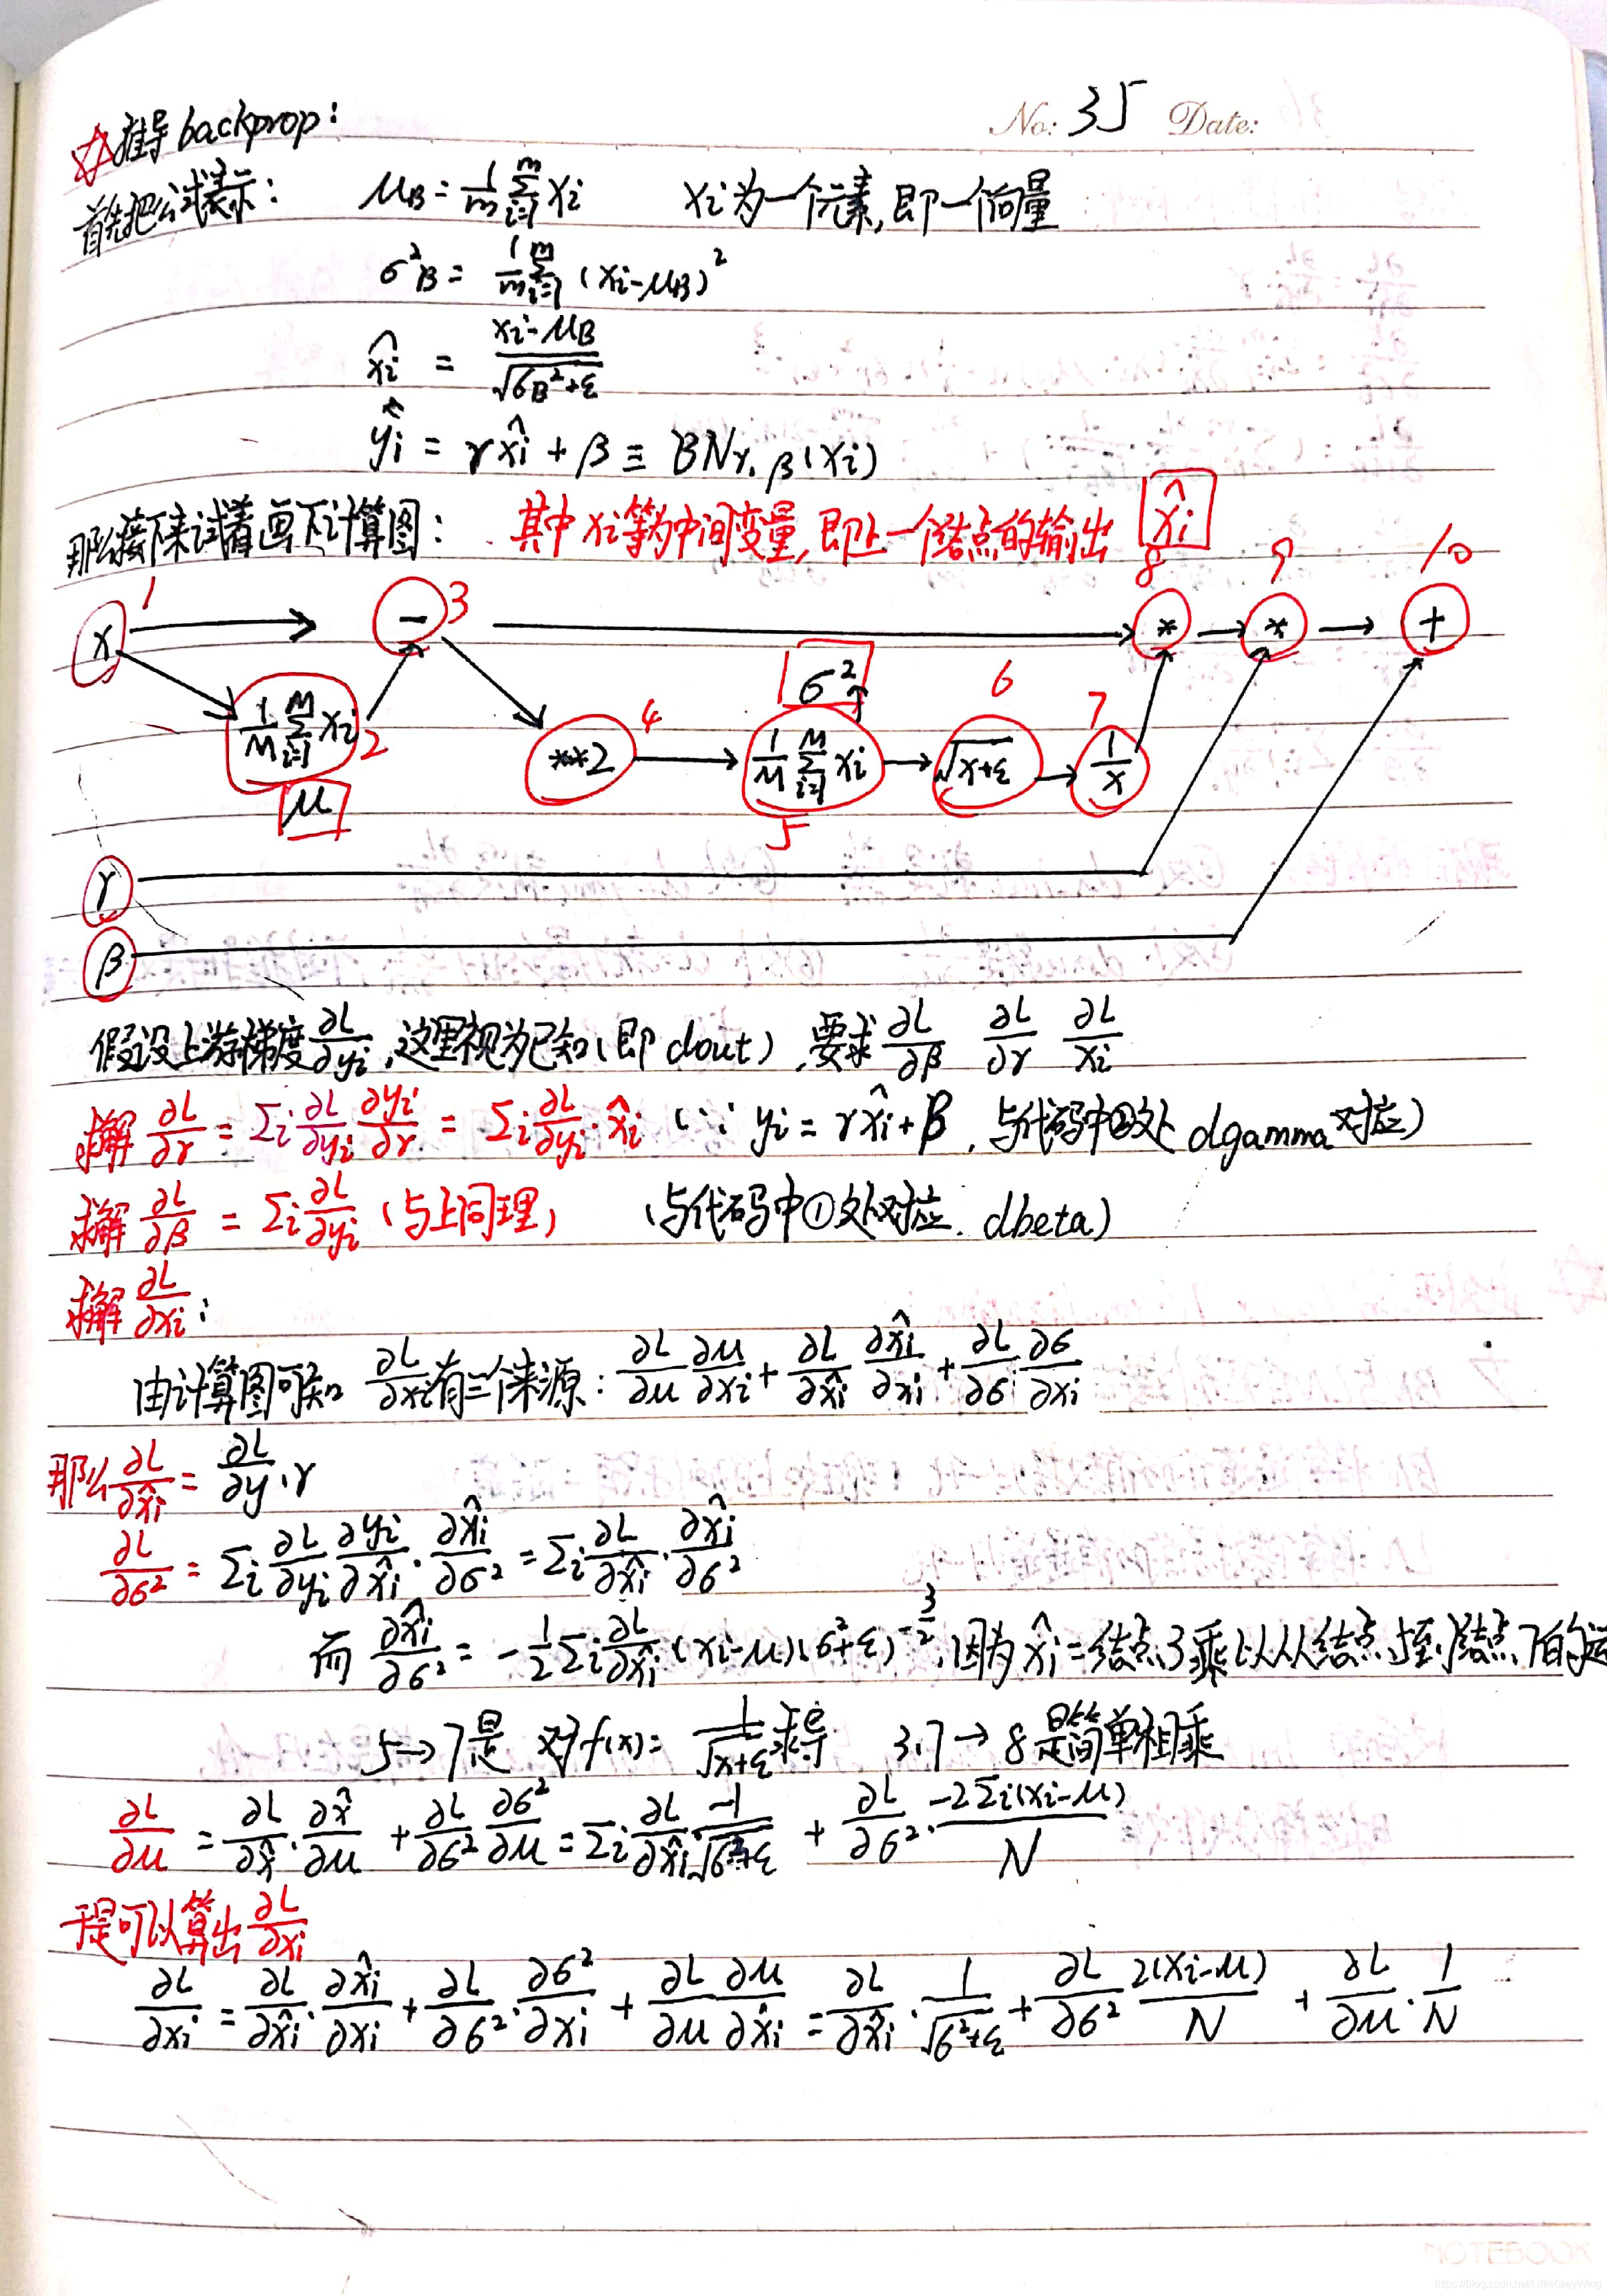 No: 35 Date:
☆推导 backprop:
首先把公式表示: μB = 1/m ∑_{i=1}^{m} xi xi为一个元素,即一个向量
σ²B = 1/m ∑_{i=1}^{m} (xi-μB)²
x̂i = (xi-μB)/√(σB²+ε)
ŷi = γx̂i + β ≡ BNγ,β(xi)
那么接下来试着画下计算图: 其中xi等为中间变量,即上一个结点的输出 x̂i
1 3 8 9 10
x - * * +
1/M ∑_{i=1}^{M} xi 2 **2 4 σ² 1/M ∑_{i=1}^{M} xi 6 √x+ε 7 1/x
μ 5
γ
β
假设上游梯度 ∂L/∂yi,这里视为已知(即 dout),要求 ∂L/∂β ∂L/∂γ ∂L/xi
求解 ∂L/∂γ = ∑i ∂L/∂yi ∂yi/∂γ = ∑i ∂L/∂yi · x̂i (∵ yi = γx̂i + β, 与代码中②处 dgamma对应)
求解 ∂L/∂β = ∑i ∂L/∂yi (与上同理) (与代码中①处对应. dbeta)
求解 ∂L/∂xi:
由计算图可知 ∂L/∂xi有三个来源: ∂L/∂μ ∂μ/∂xi + ∂L/∂x̂i ∂x̂i/∂xi + ∂L/∂σ ∂σ/∂xi
那么 ∂L/∂x̂i = ∂L/∂y · γ
∂L/∂σ² = ∑i ∂L/∂yi ∂yi/∂x̂i · ∂x̂i/∂σ² = ∑i ∂L/∂x̂i · ∂x̂i/∂σ²
而 ∂x̂i/∂σ² = -1/2 ∑i ∂L/∂x̂i (xi-μ)(σ²+ε)^{-3/2},因为 x̂i = 结点3乘以从结点5至结点7的
5→7是 对f(x) = 1/√x+ε 求导 3,7→8是简单相乘
∂L/∂μ = ∂L/∂x̂ · ∂x̂/∂μ + ∂L/∂σ² ∂σ²/∂μ = ∑i ∂L/∂x̂i · -1/√σ²+ε + ∂L/∂σ² · -2∑i(xi-μ)/N
于是可以算出 ∂L/∂xi
∂L/∂xi = ∂L/∂x̂i · ∂x̂i/∂xi + ∂L/∂σ² · ∂σ²/∂xi + ∂L/∂μ ∂μ/∂xi = ∂L/∂x̂i · 1/√σ²+ε + ∂L/∂σ² 2(xi-μ)/N + ∂L/∂μ · 1/N
NOTEBOOK
https://blog.csdn.net/LittleGreyWing